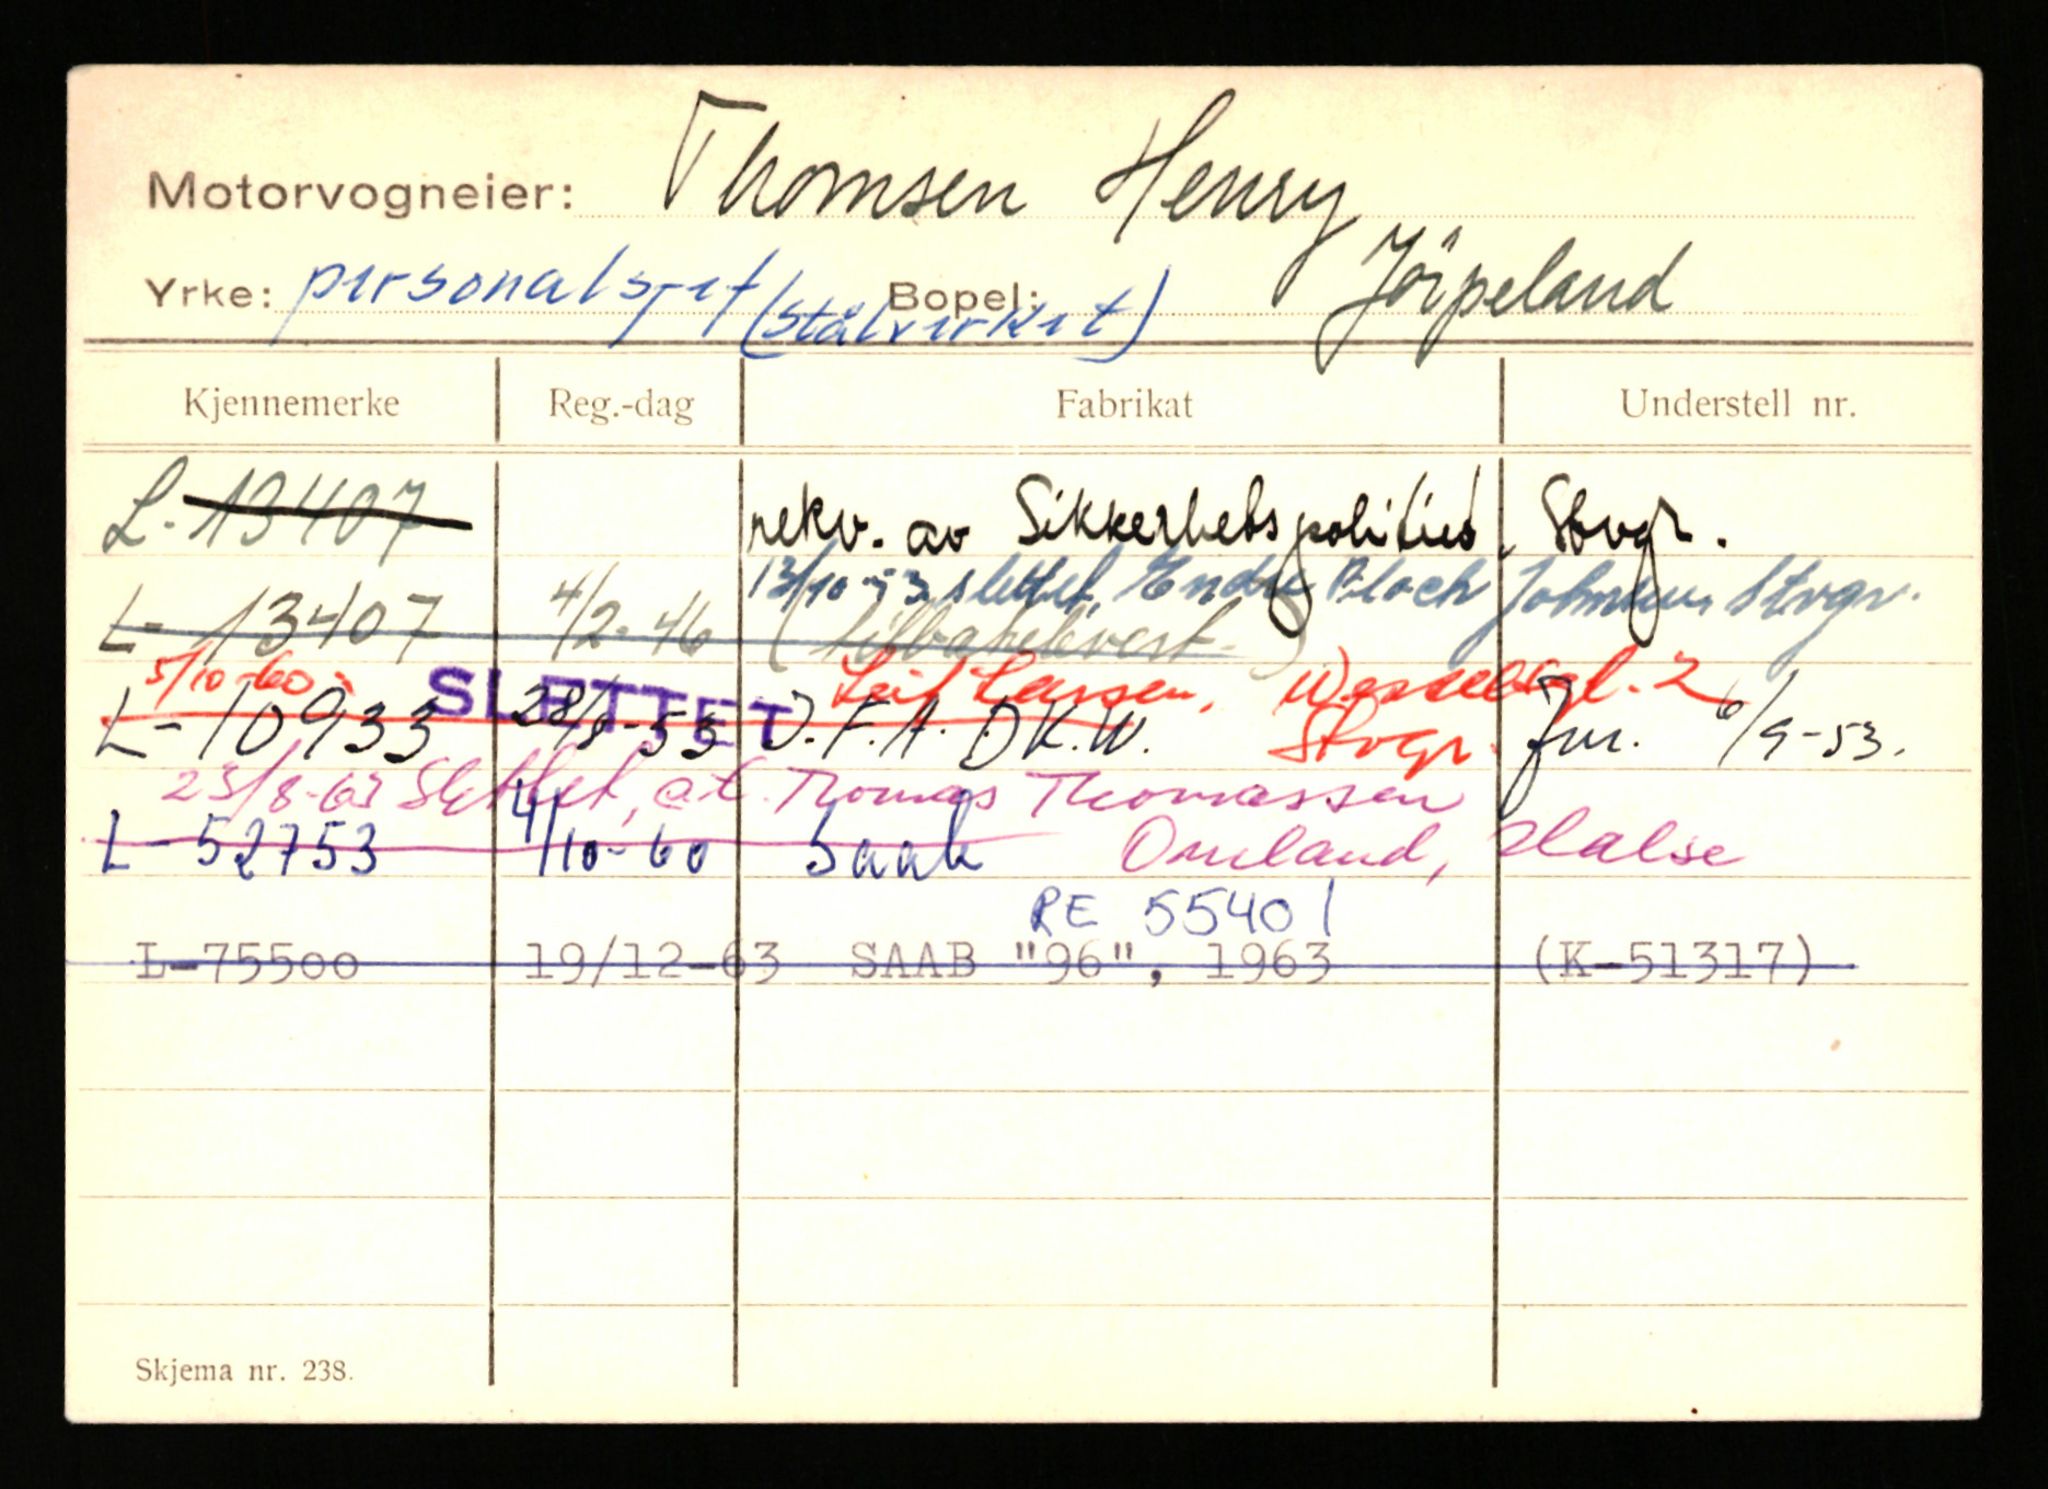 Motorvogneier: Thomsen Henry
Yrke: personalsjef (Stålverket) Bopel: Jørpeland
Kjennemerke Reg.-dag Fabrikat Understell nr.
L-13407 rekv. av Sikkerhetspolitiet, Stvgr.
13/10-53 slettet, Endre Bloch Johnsen, Stvgr.
L-13407 4/2-46 (tilbakelevert)
5/10-60: Leif Larsen, Wesselsgt. 2
SLETTET
L-10933 28/8-53 I.F.A. D.K.W. Stvgr. 6/9-53.
23/8-63 Slettet, at. Thomas Thomassen
L-52753 4/10-60 Saab Omland, Halse
RE 55401
L-75500 19/12-63 SAAB "96", 1963 (K-51317)
Skjema nr. 238.